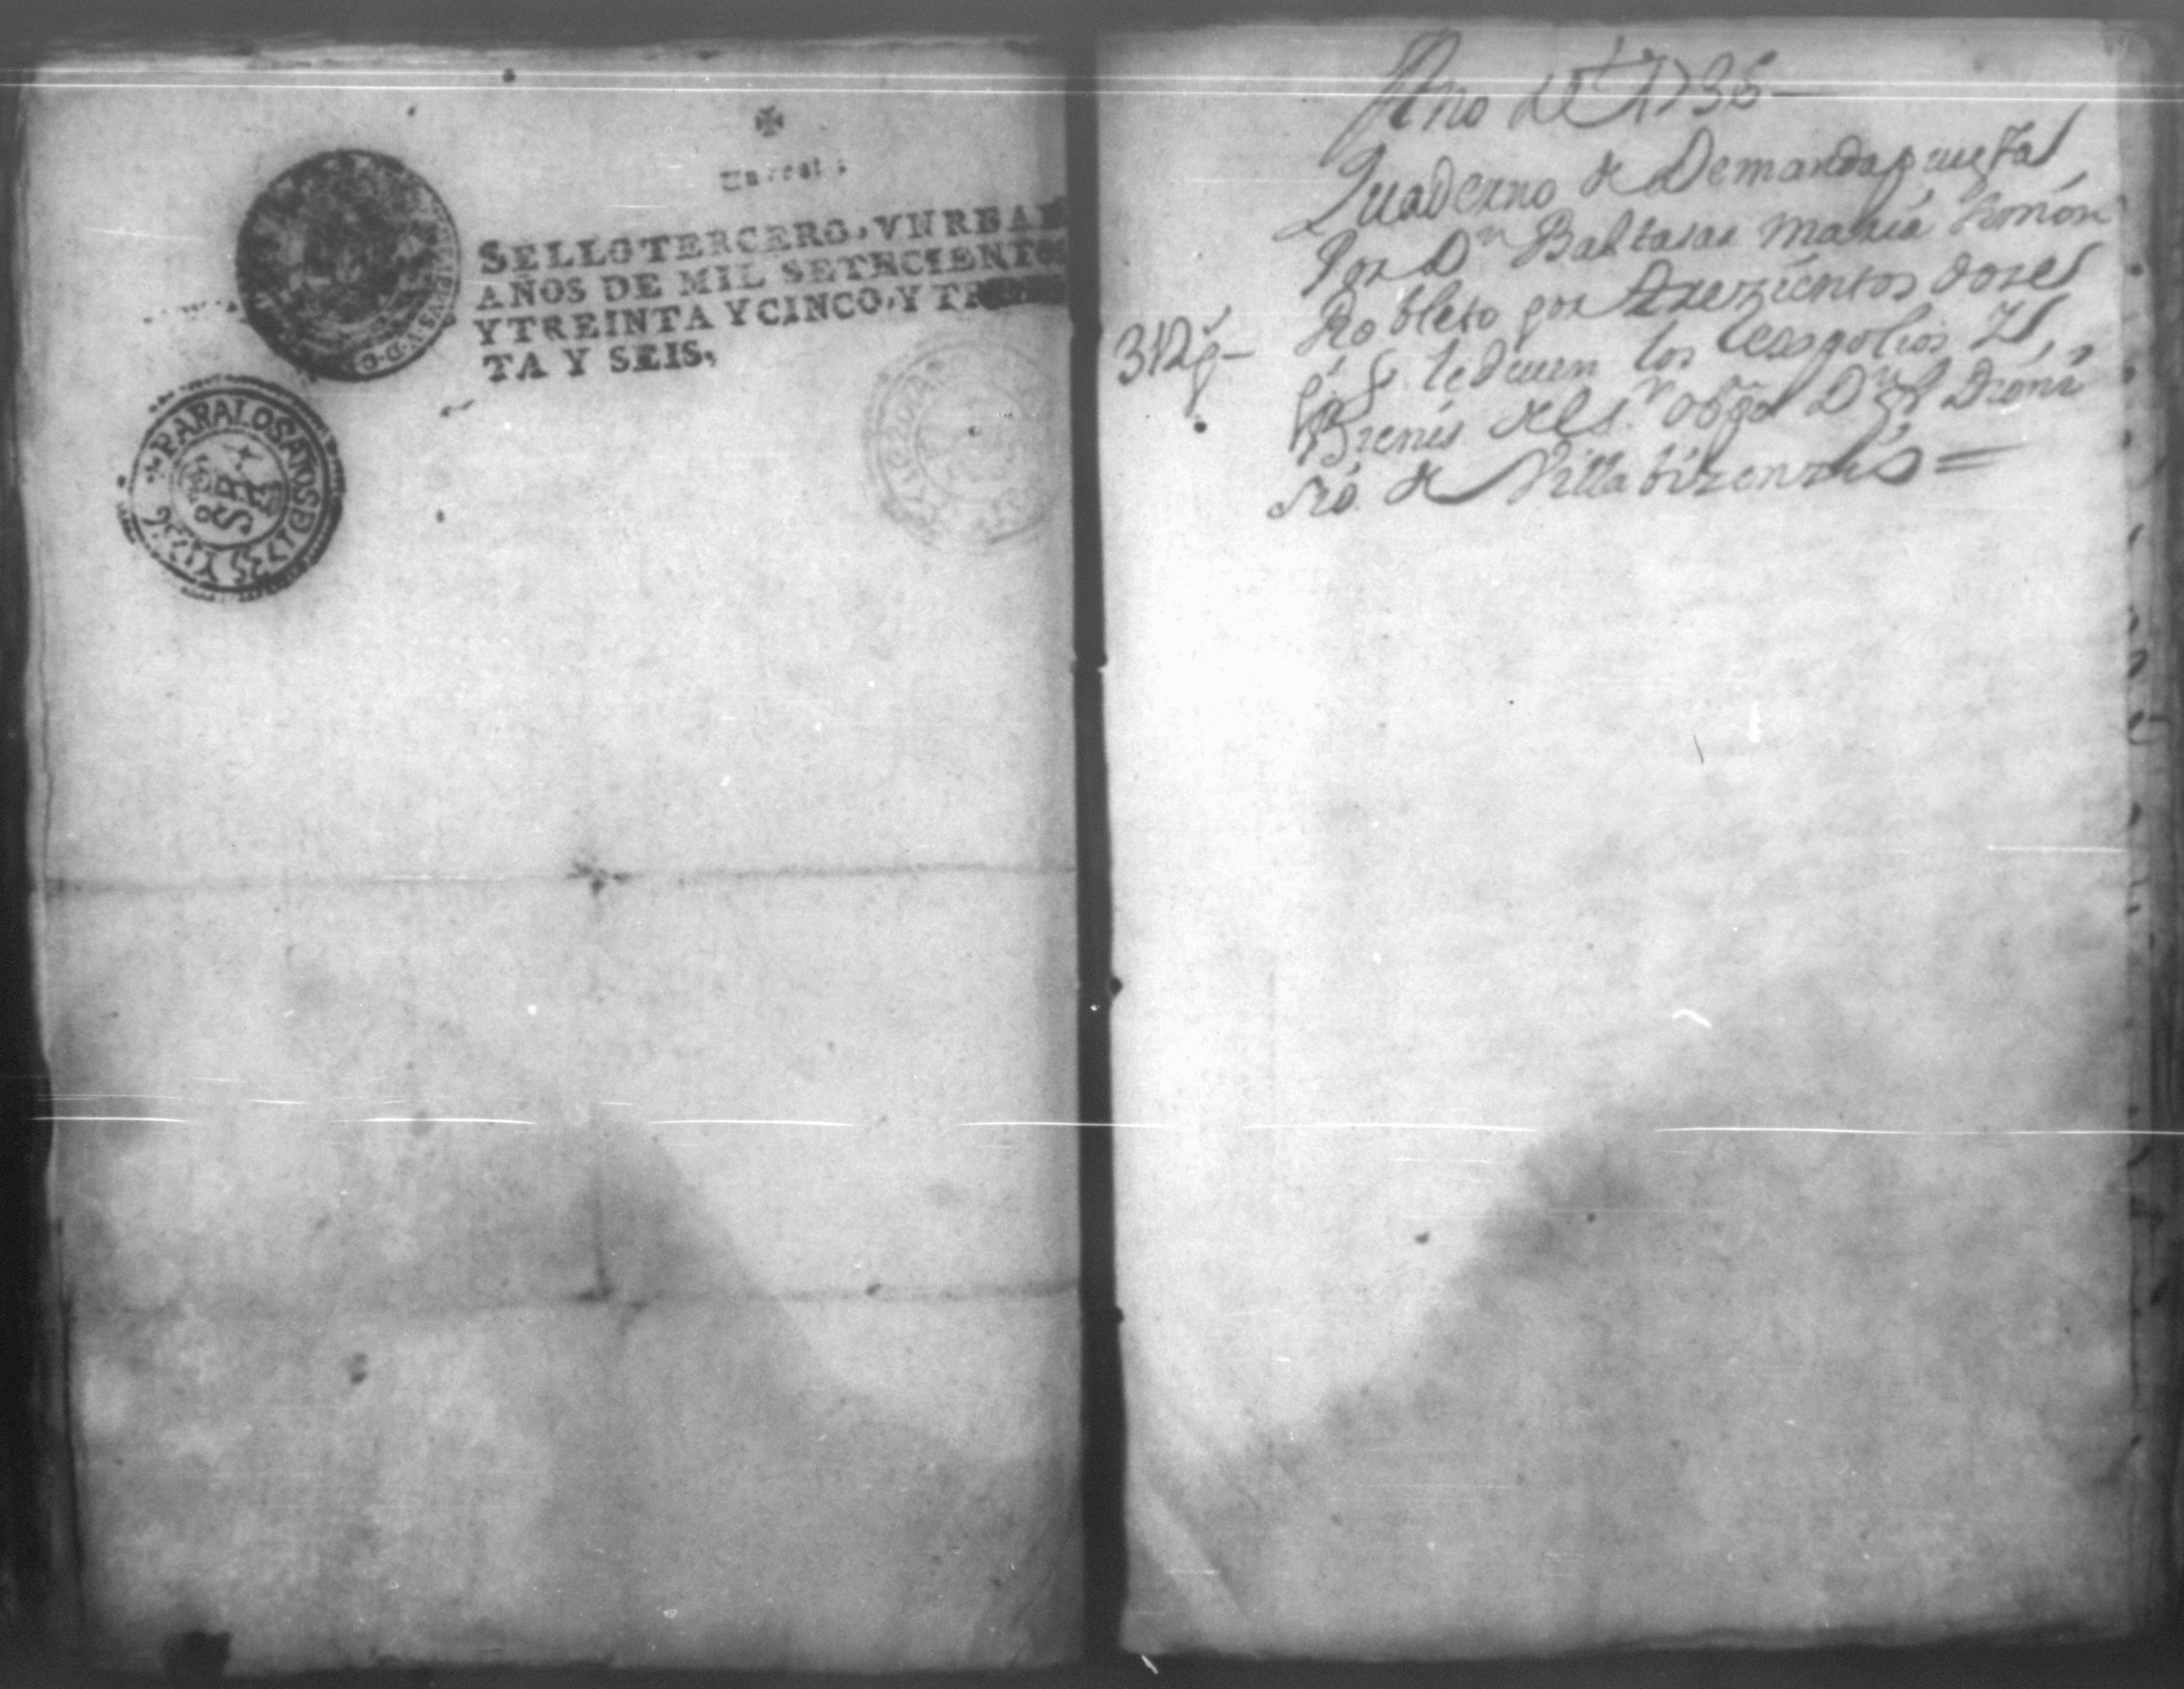 SELLO TERCERO, VN REAL
AÑOS DE MIL SETECIENTOS
Y TREINTA Y CINCO, Y TREIN
TA Y SEIS,
PARA LOS AÑOS D 1735 Y 1736
Año de 1736
Quaderno de Demanda puesta
Por Dn Baltasar Maria Romón
Robleto por Trezientos doze
312 ps
ps q. le deven los Cespolios y
Bienes del Sr. Obpo Dn Dioni
sio de Villabizenzis =